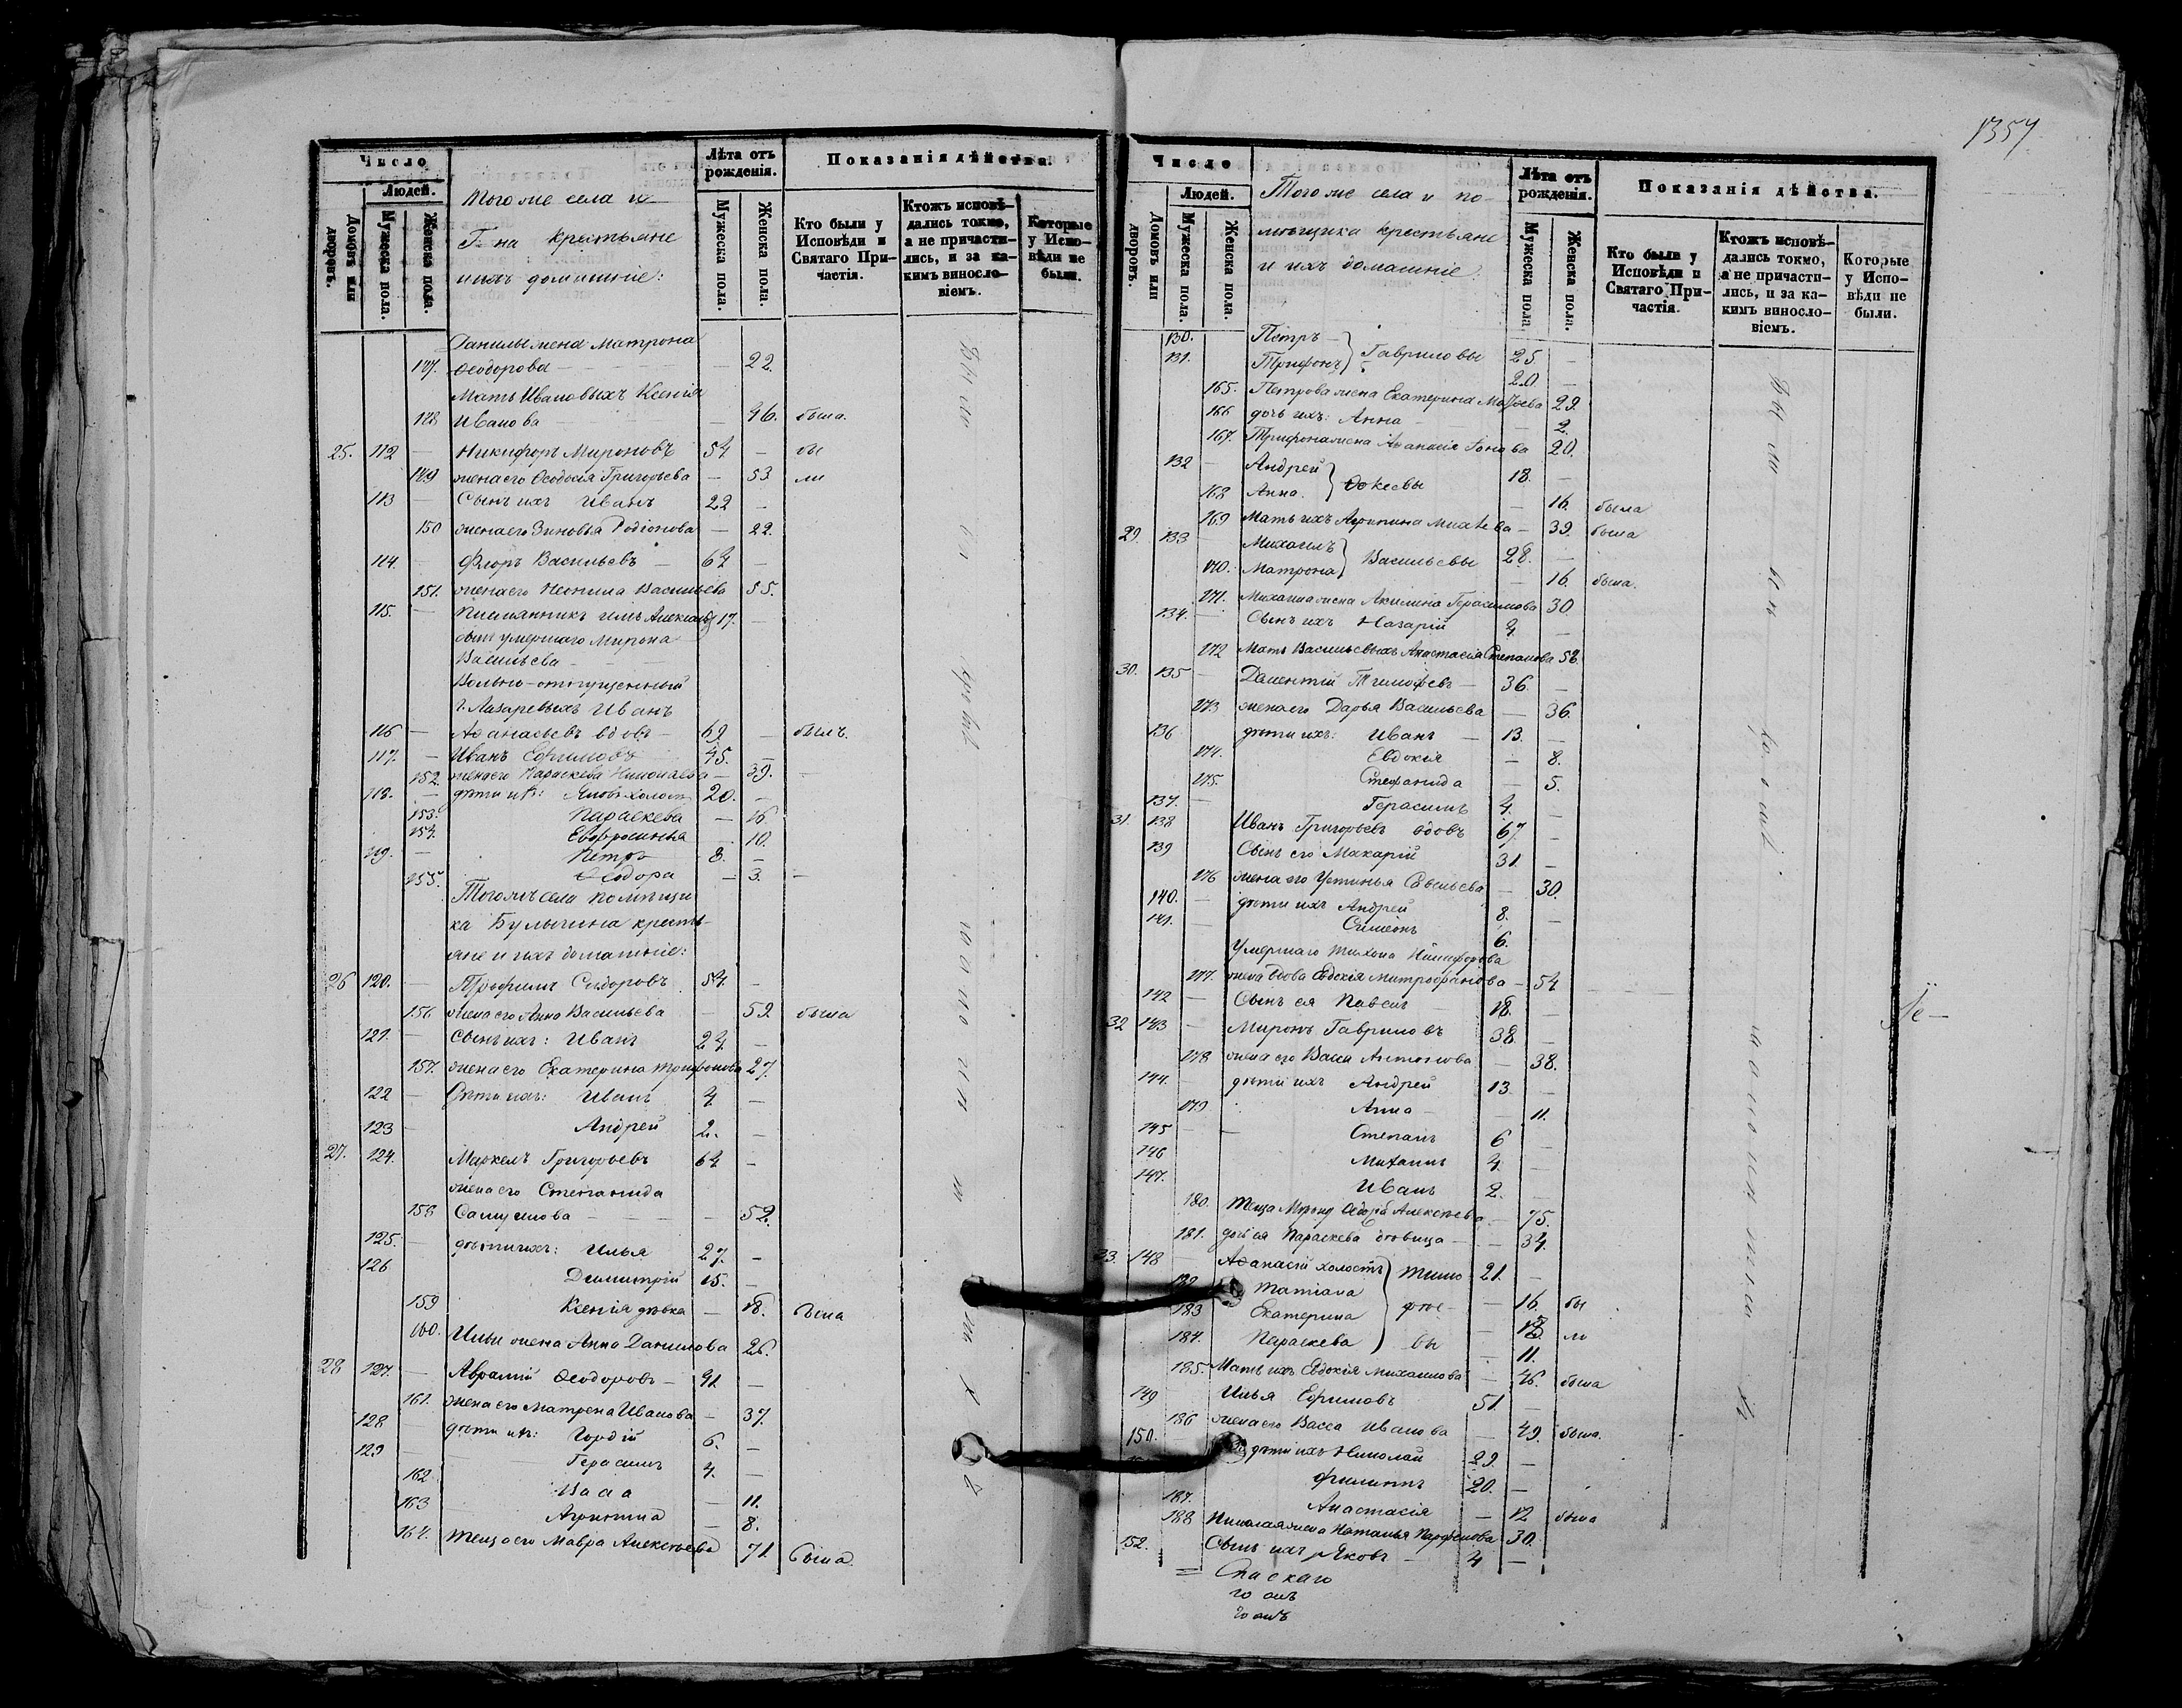 1357
Число
Людей.
Домовъ или дворовъ.
Мужеска пола.
Женска пола.
Тогоже села и
Г-на крестьяне
и ихъ домашніе:
Лѣта отъ рожденія.
Мужеска пола.
Женска пола.
Показанія дѣйства.
Кто были у Исповѣди и Святаго Причастія.
Ктожъ исповѣдались токмо, а не причастились, и за какимъ винословіемъ.
Которые у Исповѣди не были.
Данилы жена Матрона
147. Ѳеодорова — 22.
Мать Ивановыхъ Ксенія
148 Иванова — 46. была.
25. 112 — Никифоръ Мироновъ 54 — бы
149 жена его Ѳеодосія Григорьева — 53 ли
113 — Сынъ ихъ Иванъ 22 —
150 жена его Зиновья Родіонова — 22.
114. — Флоръ Васильевъ — 64 —
151. жена его Неонила Васильева 55.
115. — Племянникъ 17. —
сынъ умершаго Мирона
Васильева —
Вольно-отпущенный
г. Лазаревыхъ Иванъ
116 — Аѳанасьевъ вдовъ — 69 — былъ.
117. — Иванъ Ефимовъ 45. —
152. жена его Параскева Николаева — 39. —
118. — дѣти ихъ: Яковъ холостъ 20. —
153. Параскева — 16.
154. Евфросинья — 10.
119. — Петръ 8. —
155. Ѳеодора — 3. —
Тогожъ села помѣщи-
ка Булыгина кресть-
яне и ихъ домашніе:
26 120. — Трофимъ Сидоровъ 54. —
156. жена его Анна Васильева — 52 была
121. — Сынъ ихъ: Иванъ 24. —
157. жена его Екатерина Трифонова 27.
122 — Дѣти ихъ: Иванъ 4 —
123 — Андрей 2. —
27. 124. Маркелъ Григорьевъ 64 —
жена его Степанида
158 Самуилова — 52.
125. — дѣти ихъ: Илья 27. —
126 Димитрій 15. —
159 Ксенія дѣвка — 18. была
160. Ильи жена Анна Данилова 26.
28 127. — Аврамій Ѳеодоровъ — 41 —
161. жена его Матрена Иванова — 37.
128 дѣти ихъ: Гордій 6. —
129 — Герасимъ 4. —
162. Васа — 11.
163 Агрипина — 8.
164. Теща его Мавра Алексѣева 71. была.
Число
Людей.
Домовъ или дворовъ.
Мужеска пола.
Женска пола.
Тогоже села и по-
мѣщика крестьяне
и ихъ домашніе.
Лѣта отъ рожденія.
Мужеска пола.
Женска пола.
Показанія дѣйства.
Кто были у Исповѣди и Святаго Причастія.
Ктожъ исповѣдались токмо, а не причастились, и за какимъ винословіемъ.
Которые у Исповѣди не были.
130. Петръ — } Гавриловы 25 —
131. Трифонъ 20. —
165. Петрова жена Екатерина 29.
166 дочь ихъ: Анна — 2.
167. Трифона жена Аѳанасія 20.
132 — Андрей } 18. —
168 Анна. — 16. была
169 Мать ихъ Агрипина Михѣева — 39. была
29. 133 Михаилъ } Васильевы 28. —
170. Матрона — 16. была.
171. Михаила жена Акилина Герасимова 30
134. — Сынъ ихъ Назарій 4. —
172 Мать Васильевыхъ Анастасія Степанова 58.
30. 135 — Дементій Тимофевъ — 36. —
173 жена его Дарья Васильева — 36.
136 дѣти ихъ: Иванъ — 13. —
174. Евдокія — 8.
175. Стефанида — 5.
137. — Герасимъ 4. —
31 138 Иванъ Григорьевъ вдовъ 67. —
139 Сынъ его Макарій 31. —
176 жена его Устинья Савельева — 30.
140. — дѣти ихъ Андрей 8. —
141. — Симеонъ 6.
Умершаго Тихона Никифорова
177. жена вдова Евдокія Митрофанова — 54
142 — Сынъ ея Павелъ 18. —
32 143 — Миронъ Гавриловъ 38. —
178 жена его Васса Антонова — 38.
144. — дѣти ихъ Андрей 13 —
179 Анна — 11.
145 — Степанъ 6 —
146 Михаилъ 4. —
147. Иванъ 2. —
180. Теща Мирона Ѳедора Алексѣева — 75.
181. дочь ея Параскева дѣвица — 34.
33. 148 Аѳанасій холостъ } Тимо- 21. —
182 Татіана фѣе- — 16. бы
183 Екатерина вы — 13. ло
184. Параскева — 11.
185. Мать ихъ Евдокія Михаилова — 46. была
149 Илья Ефимовъ 51. —
186 жена его Васса Иванова — 49. была.
150. дѣти ихъ Николай 29. —
Филиппъ 20. —
187. Анастасія — 12 была
188 Николая жена Наталья Парфенова 30.
152. Сынъ ихъ Яковъ — 4 —